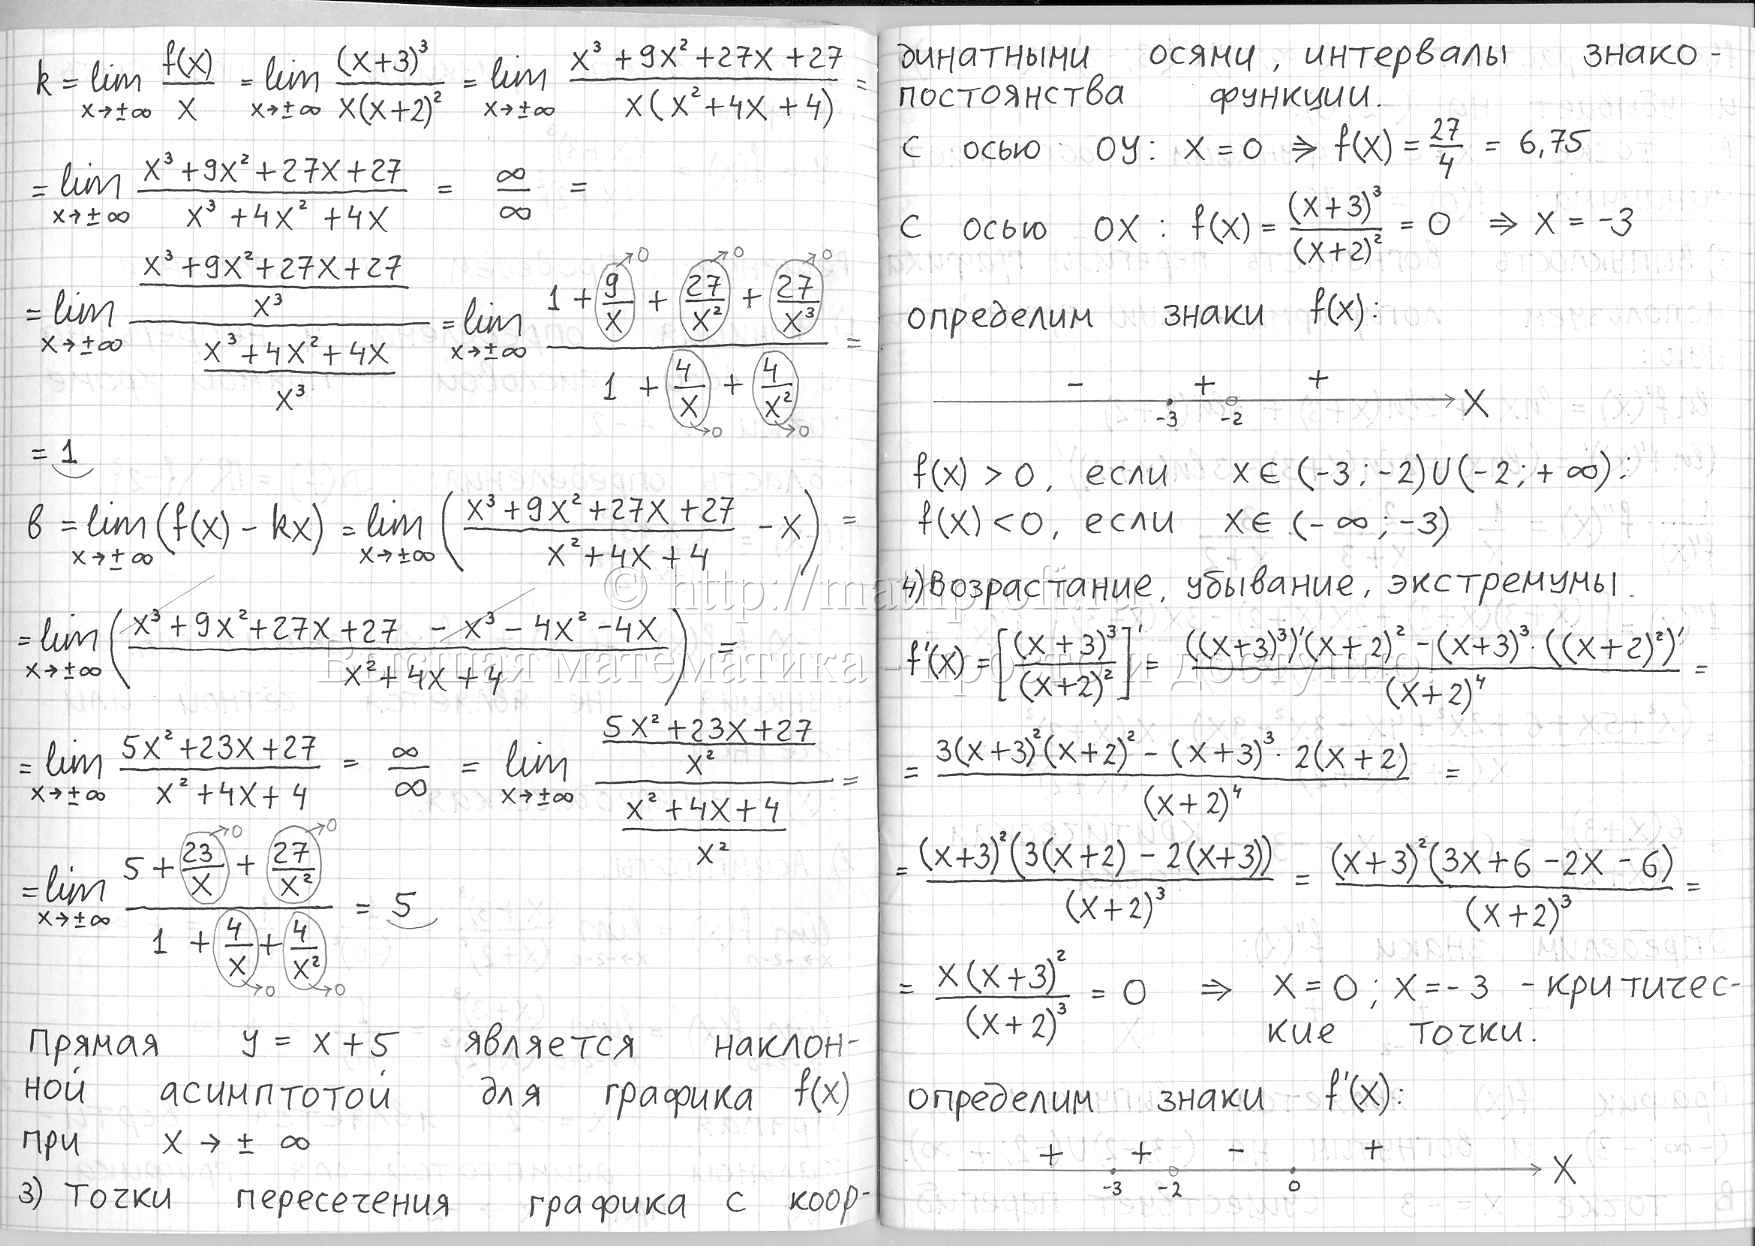 k = lim x→±∞ f(x)/x = lim x→±∞ (x+3)³/(x(x+2)²) = lim x→±∞ (x³+9x²+27x+27)/(x(x²+4x+4)) =
= lim x→±∞ (x³+9x²+27x+27)/(x³+4x²+4x) = ∞/∞ =
= lim x→±∞ ((x³+9x²+27x+27)/x³)/((x³+4x²+4x)/x³) = lim x→±∞ (1 + 9/x→0 + 27/x²→0 + 27/x³→0)/(1 + 4/x→0 + 4/x²→0) =
= 1
b = lim x→±∞ (f(x) - kx) = lim x→±∞ ((x³+9x²+27x+27)/(x²+4x+4) - x) =
= lim x→±∞ ((x³+9x²+27x+27 - x³ - 4x² - 4x)/(x²+4x+4)) =
= lim x→±∞ (5x²+23x+27)/(x²+4x+4) = ∞/∞ = lim x→±∞ ((5x²+23x+27)/x²)/((x²+4x+4)/x²) =
= lim x→±∞ (5 + 23/x→0 + 27/x²→0)/(1 + 4/x→0 + 4/x²→0) = 5
Прямая y = x+5 является наклон-
ной асимптотой для графика f(x)
при x → ± ∞
3) Точки пересечения графика с коор-
динатными осями, интервалы знако-
постоянства функции.
С осью OY: x=0 ⇒ f(x) = 27/4 = 6,75
С осью OX: f(x) = (x+3)³/(x+2)² = 0 ⇒ x = -3
определим знаки f(x):
- + +
-3 -2 X
f(x) > 0, если x∈(-3;-2)∪(-2;+∞):
f(x) < 0, если x∈(-∞;-3)
© http://mathprofi.ru
4) Возрастание, убывание, экстремумы.
Высшая математика – просто и доступно!
f'(x) = [(x+3)³/(x+2)²]' = (((x+3)³)'(x+2)² - (x+3)³·((x+2)²)')/(x+2)⁴ =
= (3(x+3)²(x+2)² - (x+3)³·2(x+2))/(x+2)⁴ =
= ((x+3)²(3(x+2) - 2(x+3)))/(x+2)³ = ((x+3)²(3x+6-2x-6))/(x+2)³ =
= x(x+3)²/(x+2)³ = 0 ⇒ x=0; x=-3 - критичес-
кие точки.
определим знаки f'(x):
+ + - +
-3 -2 0 X